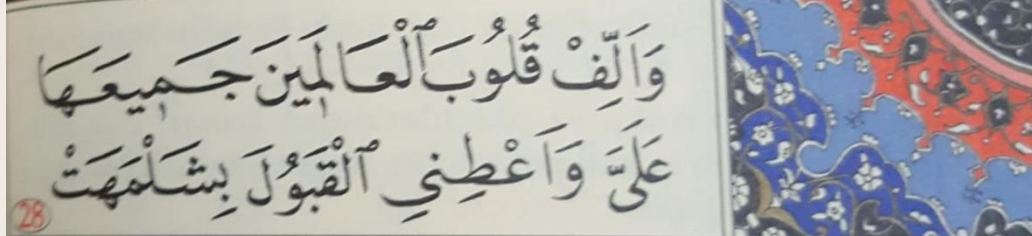 وَاَلِّفْ قُلُوبَ ٱلْعَالَمِينَ جَمِيعَهَا
عَلَىَّ وَاَعْطِنِي ٱلْقَبُولَ بِشَلْمَهَتْ
28